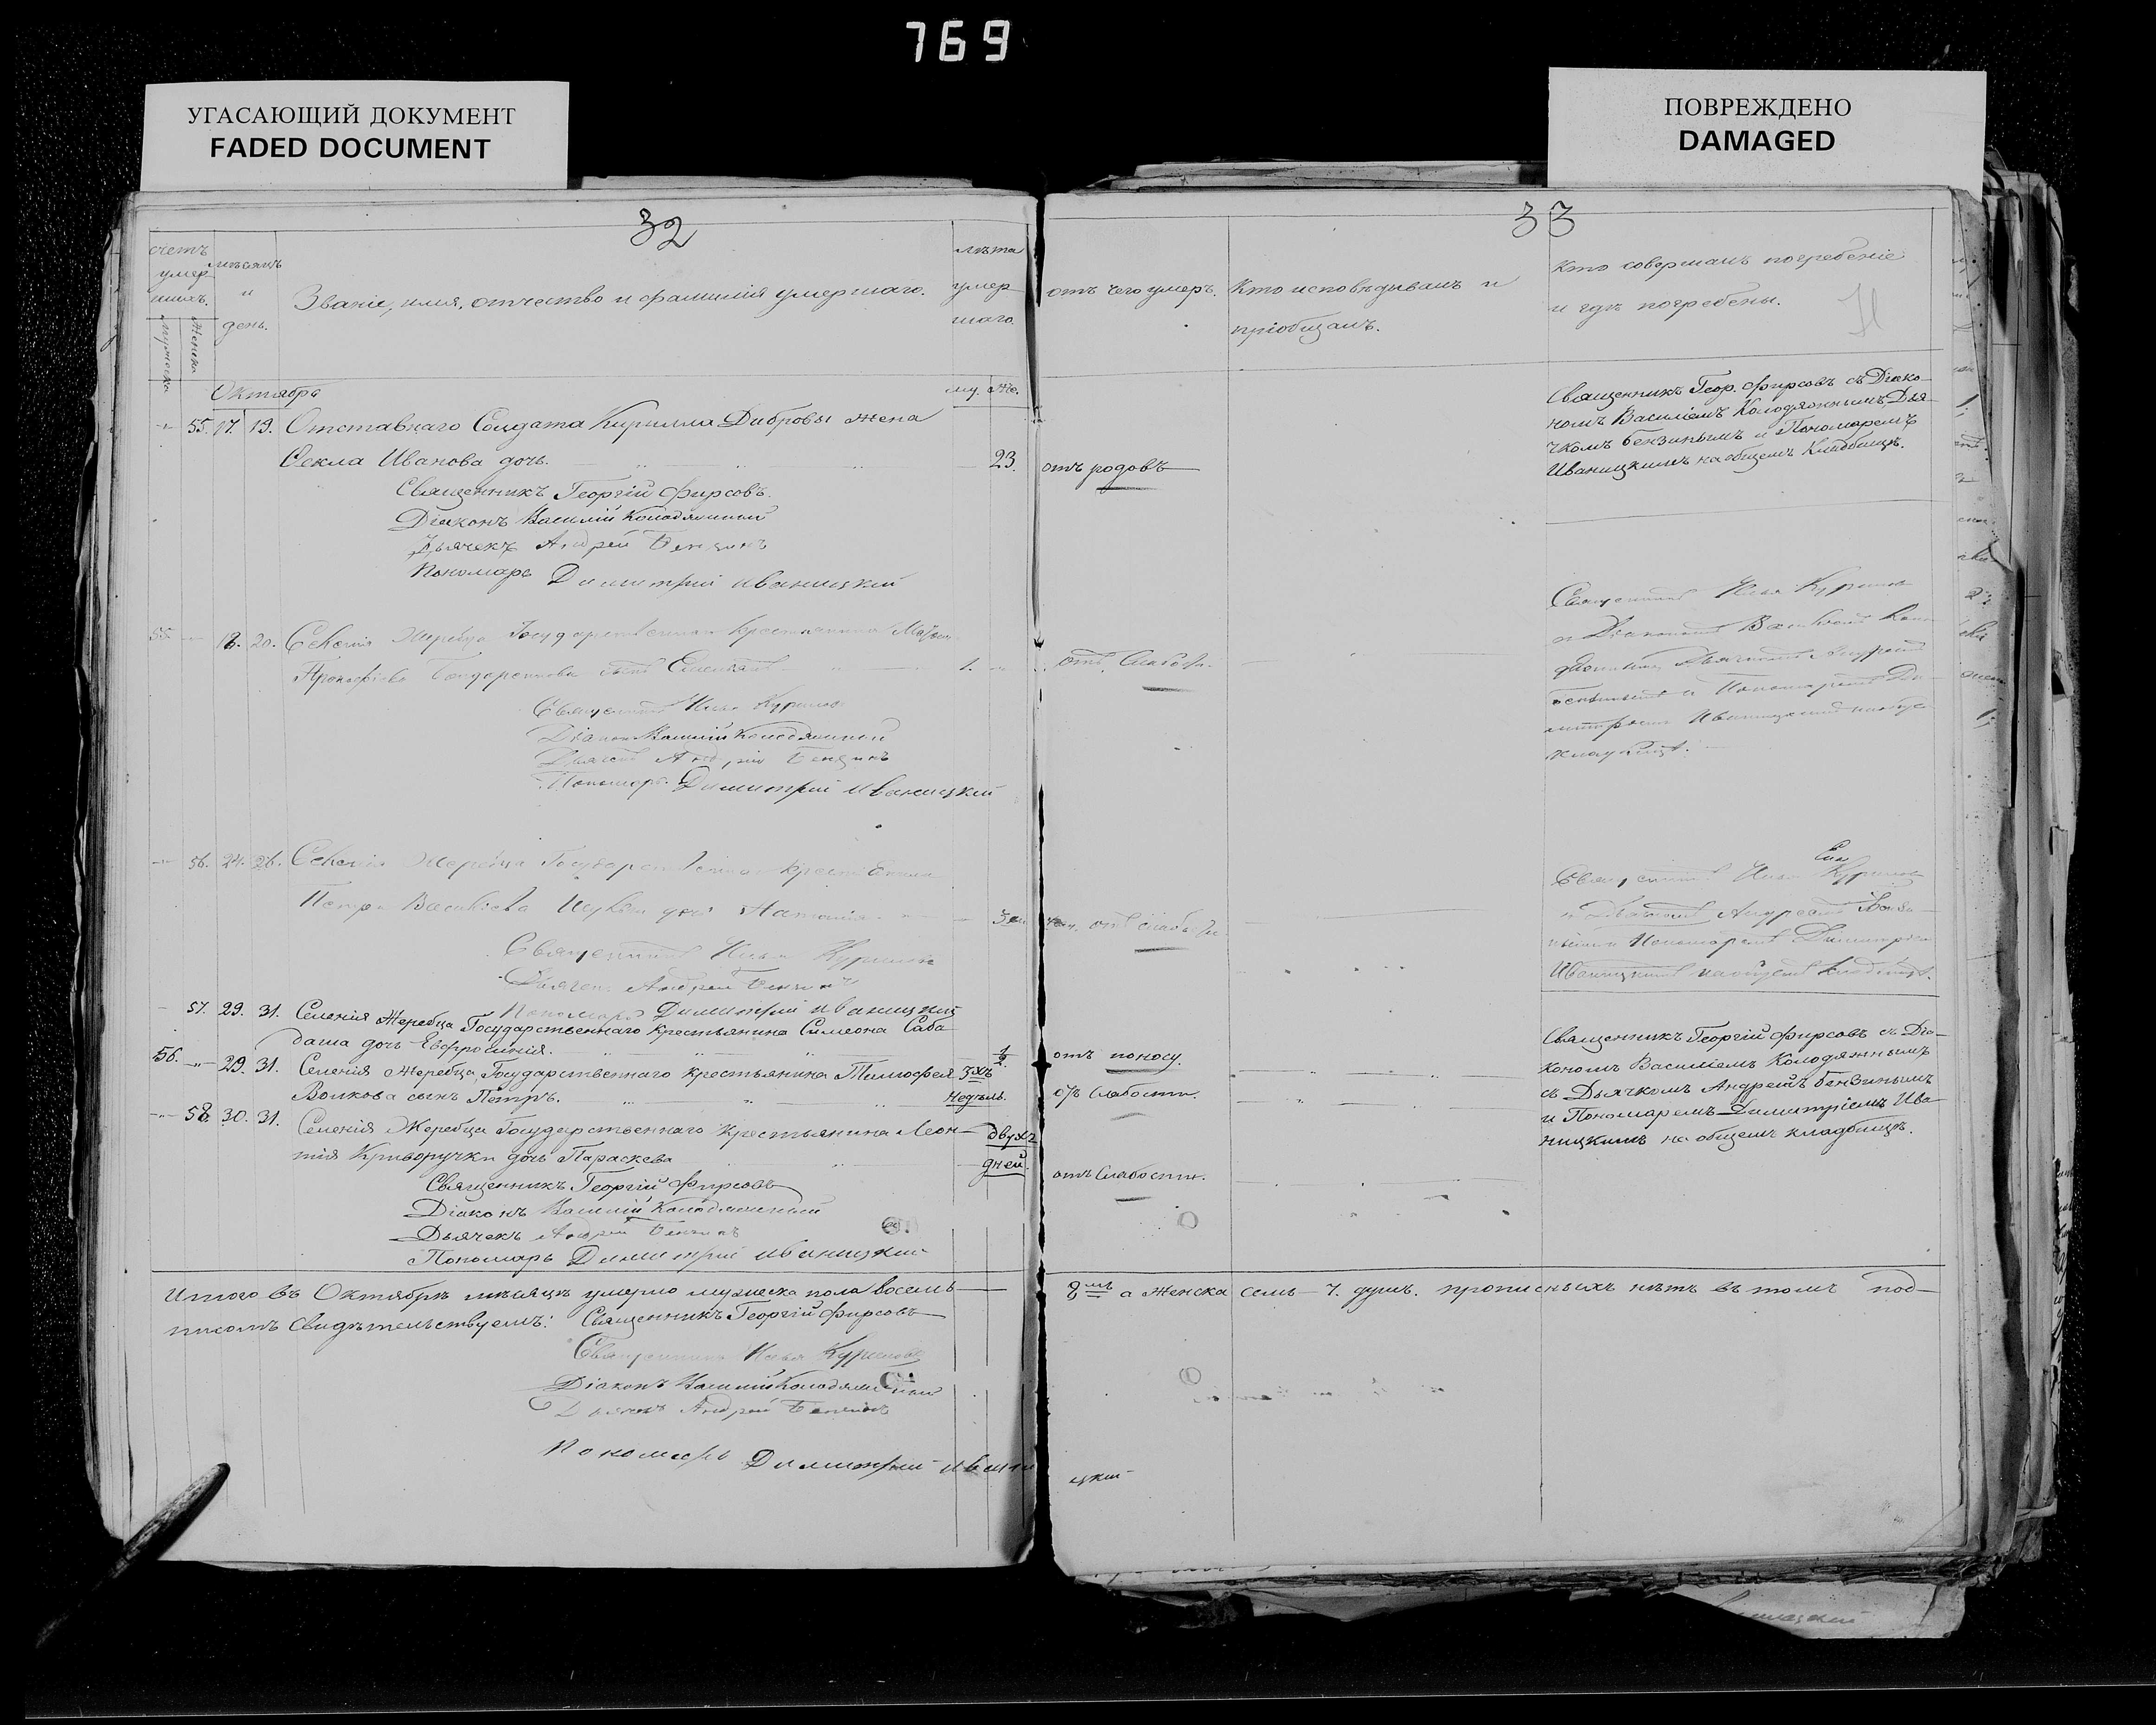 769
УГАСАЮЩИЙ ДОКУМЕНТ
FADED DOCUMENT
ПОВРЕЖДЕНО
DAMAGED
32
счетъ умершихъ.
мужеска
женска
мѣсяцъ и день.
Званіе, имя, отчество и фамилія умершаго.
лѣта умершаго.
Октябрь
му. же.
55. 17. 19. Отставнаго Солдата Кирилла Дибровы жена
Секла Иванова дочь. 23.
Священникъ Георгій Фирсовъ.
Діаконъ Василій Колодяжный
Дьячекъ Андрей Бензинъ
Пономарь Димитрій Иваницкій
55. 18. 20. Селенія Жеребца Государственнаго крестьянина
Прокофіева Бондаренкова сынъ 1.
Священникъ Илья Курилов
Діаконъ Василій Колодяжный
Дьячекъ Андрей Бензинъ
Пономарь Димитрій Иваницкій
56. 24. 26. Селенія Жеребца Государственнаго
Петра Васильева дочь Наталія
Священникъ Илья Курилов
Дьячекъ Андрей Бензинъ
Пономарь Димитрій Иваницкій
57. 29. 31. Селенія Жеребца Государственнаго крестьянина Симеона Саба
даша дочь Евфросинія. 1/2
56. 29. 31. Селенія Жеребца, Государственнаго крестьянина Тимофея 3хъ
Волкова сынъ Петръ. недѣль.
58. 30. 31. Селенія Жеребца Государственнаго крестьянина Леон- двухъ
тія Криворучки дочь Параскева дней.
Священникъ Георгій Фирсовъ
Діаконъ Василій Колодяжный
Дьячекъ Андрей Бензинъ
Пономарь Димитрій Иваницкій
Итого въ Октябрѣ мѣсяцѣ умерло мужеска пола восемь
писомъ свидѣтельствуемъ: Священникъ Георгій Фирсовъ
Священникъ Илья Курилов
Діаконъ Василій Колодяжный
Дьячекъ Андрей Бензинъ
Пономарь Димитрій Івани
33
отъ чего умеръ.
Кто исповѣдывалъ и
пріобщалъ.
Кто совершалъ погребеніе
и гдѣ погребены.
Священникъ Геор. Фирсовъ съ Діако-
номъ Василіемъ Колодяжнымъ, Дья-
чкомъ Бензинымъ и Пономаремъ
Иваницкимъ на общемъ Кладбищѣ.
отъ родовъ
Священникъ Илья Курилов
и Діакономъ Василіемъ Коло
дяжнымъ Дьячкомъ Андреемъ
Бензинымъ и Пономаремъ Ди
митріемъ Иваницкимъ
кладбищѣ.
отъ Слабости.
Священникъ Илья Курилов
Андреемъ
Пономаремъ Димитріемъ
Иваницкимъ на общемъ кладбищѣ.
отъ слабости
Священникъ Георгій Фирсовъ съ Діа-
кономъ Василіемъ Колодяжнымъ
съ Дьячкомъ Андреемъ Бензинымъ
и Пономаремъ Димитріемъ Ива
ницкимъ на общемъ кладбищѣ.
отъ поносу.
отъ Слабости.
отъ Слабости.
8мъ а женска семь 7. душъ. прописныхъ нѣтъ въ томъ под-
цкій